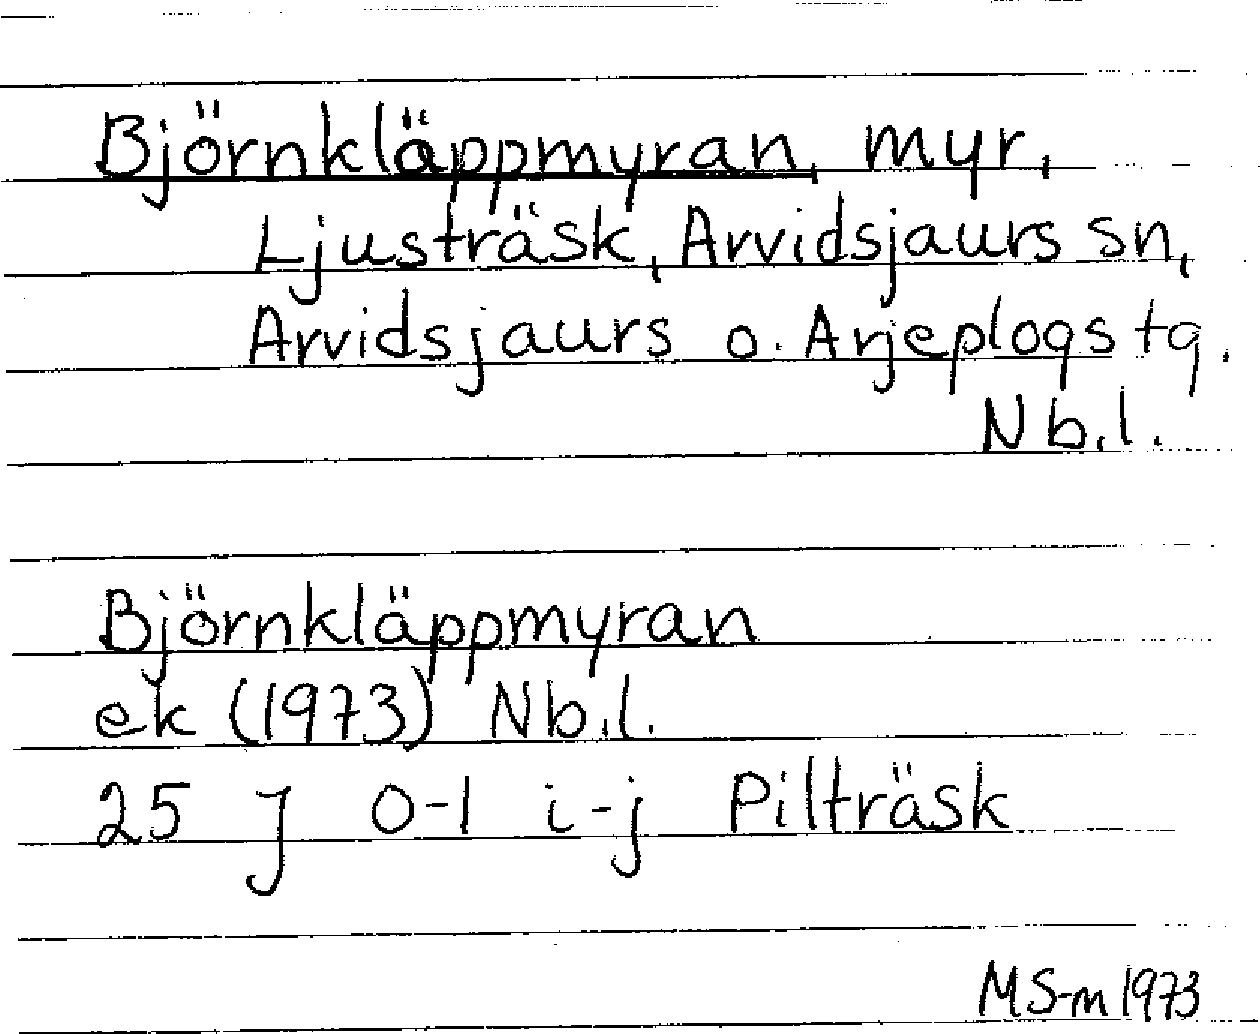 Björnkläppmyran, myr,
Ljusträsk, Arvidsjaurs sn,
Arvidsjaurs o. Arjeplogs tg.
Nb.l.
Björnkläppmyran
ek (1973) Nb.l.
25 J 0-1 i-j Pilträsk
MS-m 1973